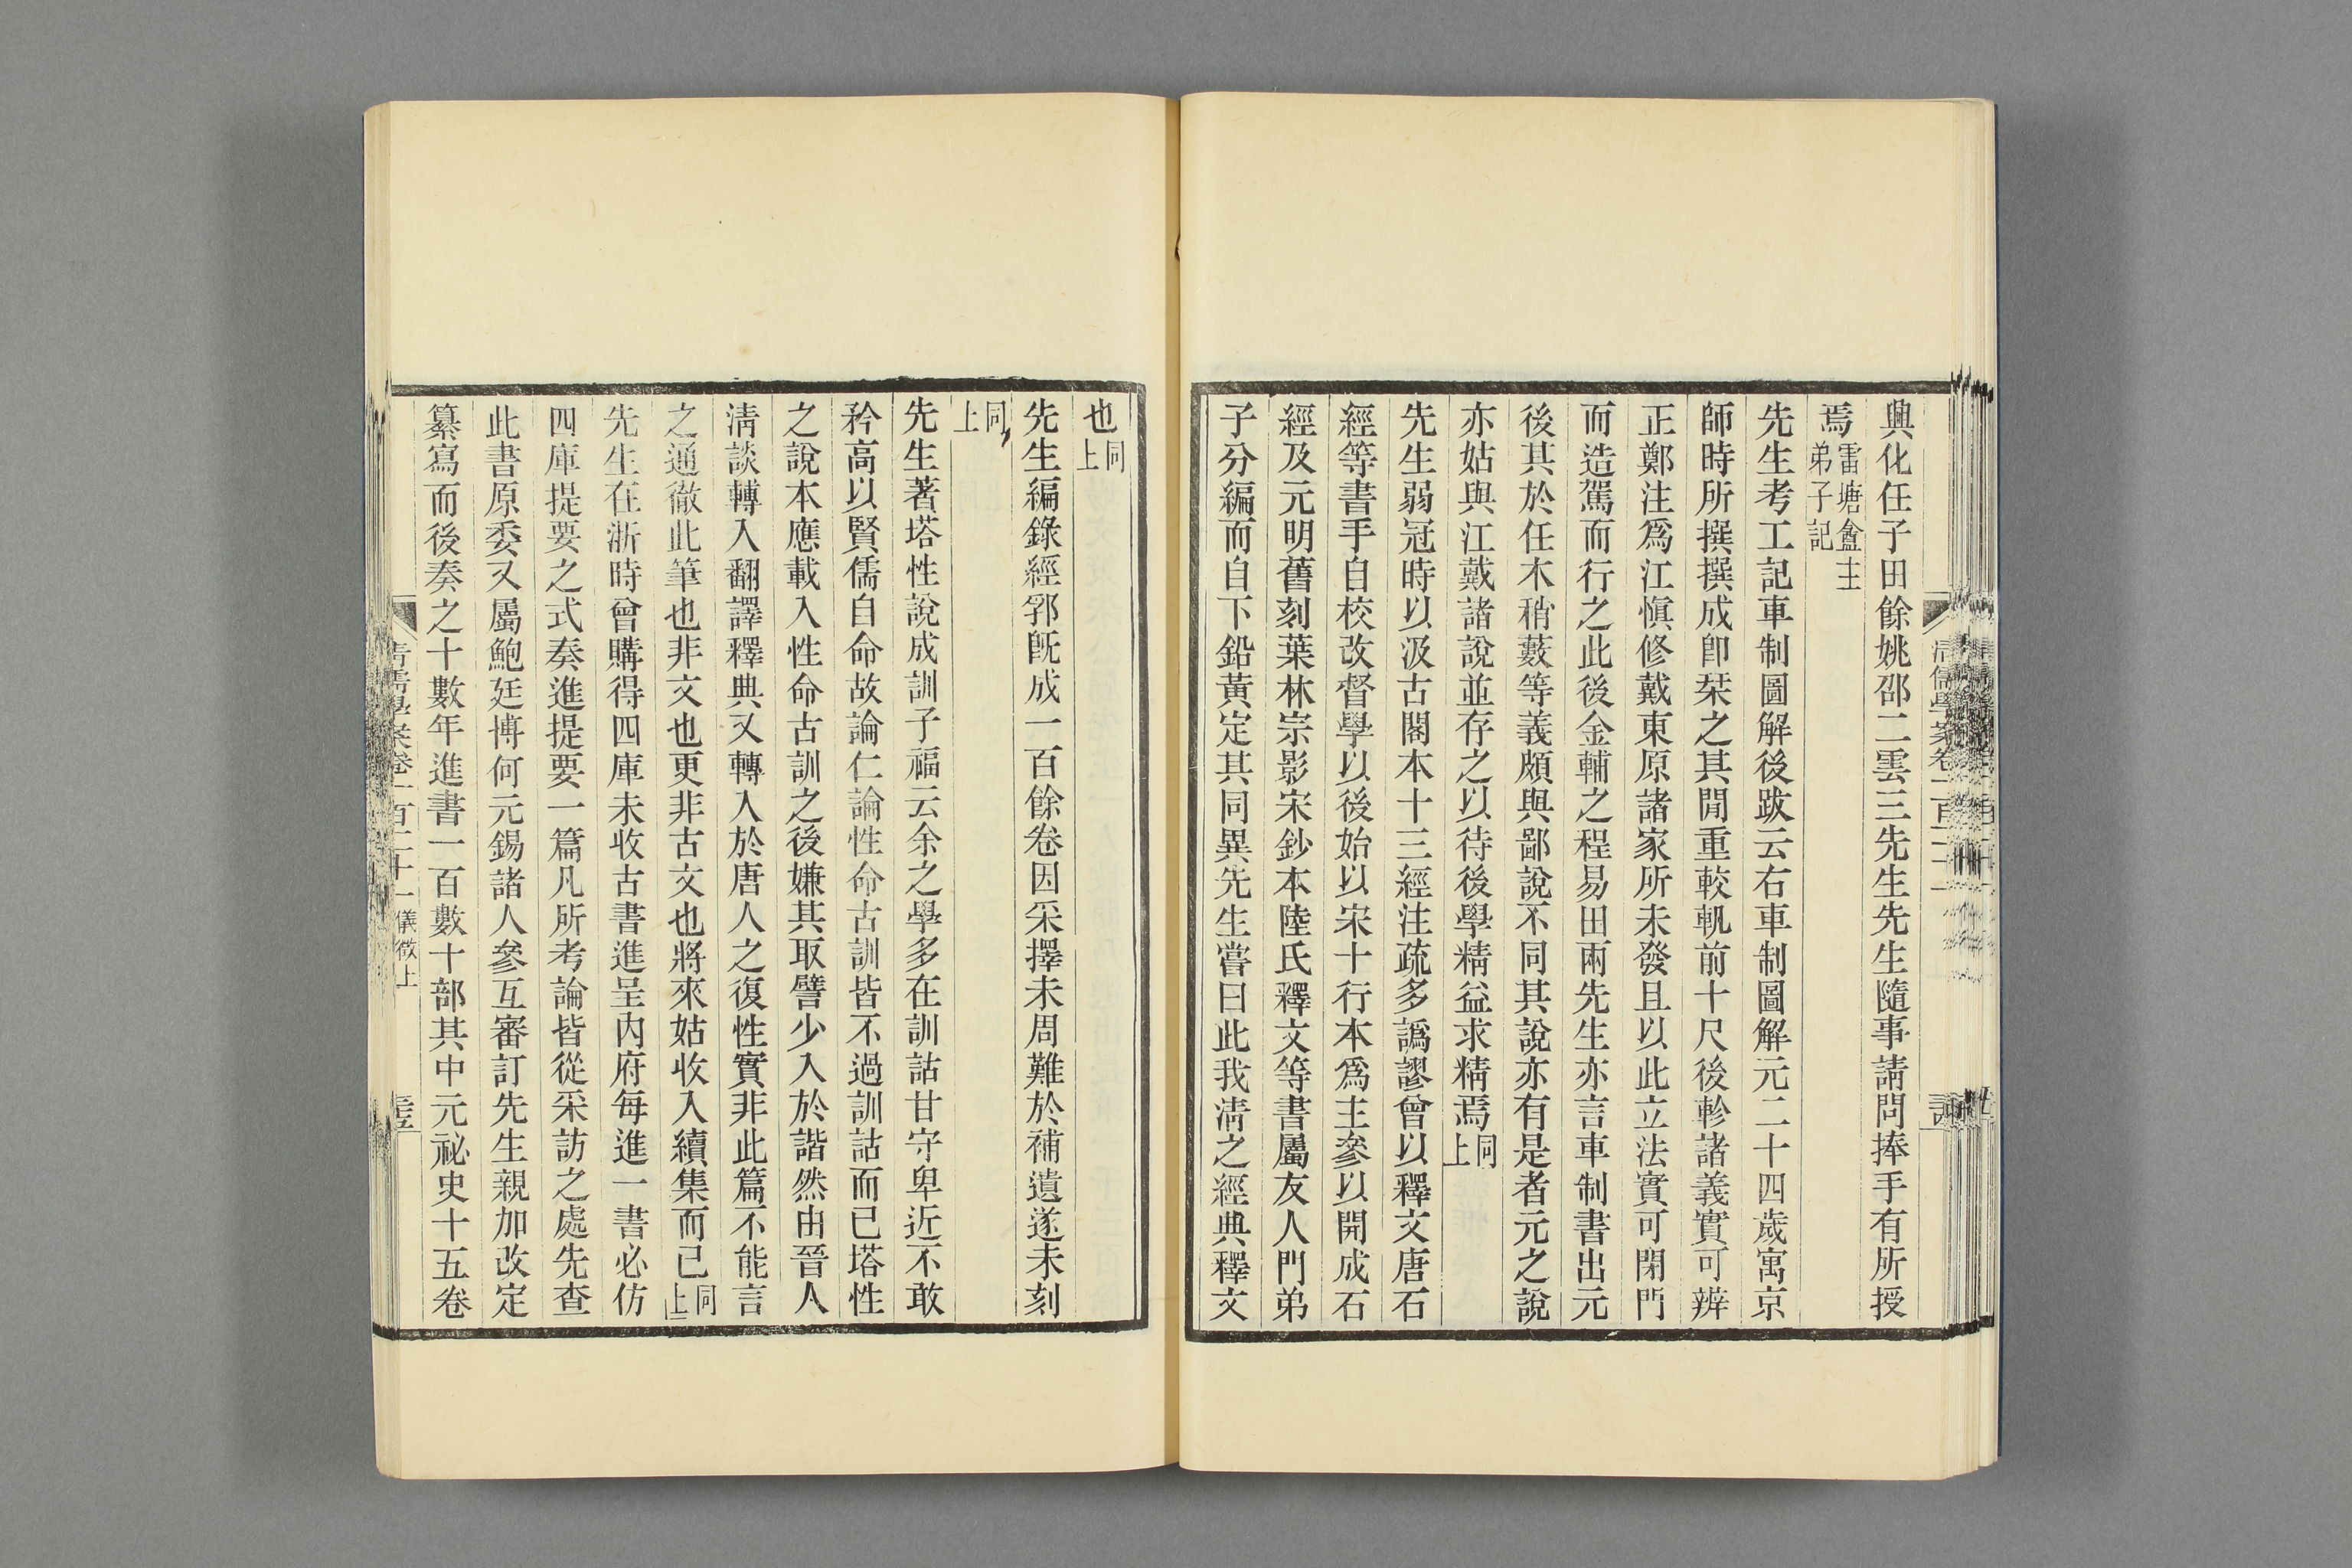 興化任子田餘姚邵二雲三先生先生隨事請問捧手有所授
焉雷塘盦主弟子記
先生考工記車制圖解後跋云右車制圖解元二十四歲寓京
師時所撰撰成卽栞之其閒重較軓前十尺後軫諸義實可辨
正鄭注爲江愼修戴東原諸家所未發且以此立法實可閉門
而造駕而行之此後金輔之程易田兩先生亦言車制書出元
後其於任木稍藪等義頗與鄙說不同其說亦有是者元之說
亦姑與江戴諸說並存之以待後學精益求精焉同上
先生弱冠時以汲古閣本十三經注疏多譌謬曾以釋文唐石
經等書手自校改督學以後始以宋十行本爲主參以開成石
經及元明舊刻葉林宗影宋鈔本陸氏釋文等書屬友人門弟
子分編而自下鉛黃定其同異先生嘗曰此我淸之經典釋文
也同上
先生編錄經郛旣成一百餘卷因采擇未周難於補遺遂未刻
同上
先生著塔性說成訓子福云余之學多在訓詁甘守卑近不敢
矜高以賢儒自命故論仁論性命古訓皆不過訓詁而已塔性
之說本應載入性命古訓之後嫌其取譬少入於諧然由晉人
淸談轉入翻譯釋典又轉入於唐人之復性實非此篇不能言
之通徹此筆也非文也更非古文也將來姑收入續集而已同上
先生在浙時曾購得四庫未收古書進呈內府每進一書必仿
四庫提要之式奏進提要一篇凡所考論皆從采訪之處先查
此書原委又屬鮑廷博何元錫諸人參互審訂先生親加改定
纂寫而後奏之十數年進書一百數十部其中元祕史十五卷
清儒學案卷一百二十一 儀徵上